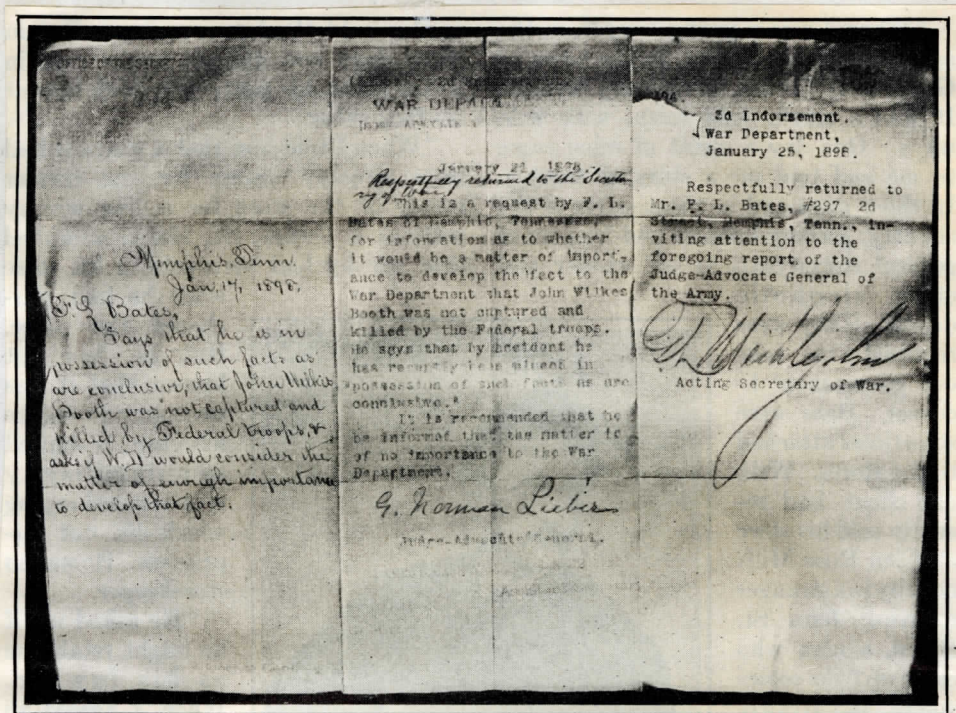 Memphis, Tenn.
Jan. 17, 1898.
F. L. Bates,
Says that he is in
possession of such facts as
are conclusive, that John Wilkes
Booth was not captured and
killed by Federal troops, &
asks if W.D. would consider the
matter of enough importance
to develop that fact.
WAR DEPARTMENT
January 21, 1898.
Respectfully returned to the Secreta-
ry of War
This is a request by F. L.
Bates of Memphis, Tennessee,
for information as to whether
it would be a matter of import-
ance to develop the fact to the
War Department that John Wilkes
Booth was not captured and
killed by the Federal troops.
He says that by accident he
has recently been placed in
"possession of such facts as are
conclusive."
It is recommended that he
be informed that the matter is
of no importance to the War
Department.
G. Norman Lieber
Judge-Advocate General.
2d Indorsement.
War Department,
January 25, 1898.
Respectfully returned to
Mr. F. L. Bates, #297 2d
Street, Memphis, Tenn., in-
viting attention to the
foregoing report of the
Judge-Advocate General of
the Army.
G D Meiklejohn
Acting Secretary of War.